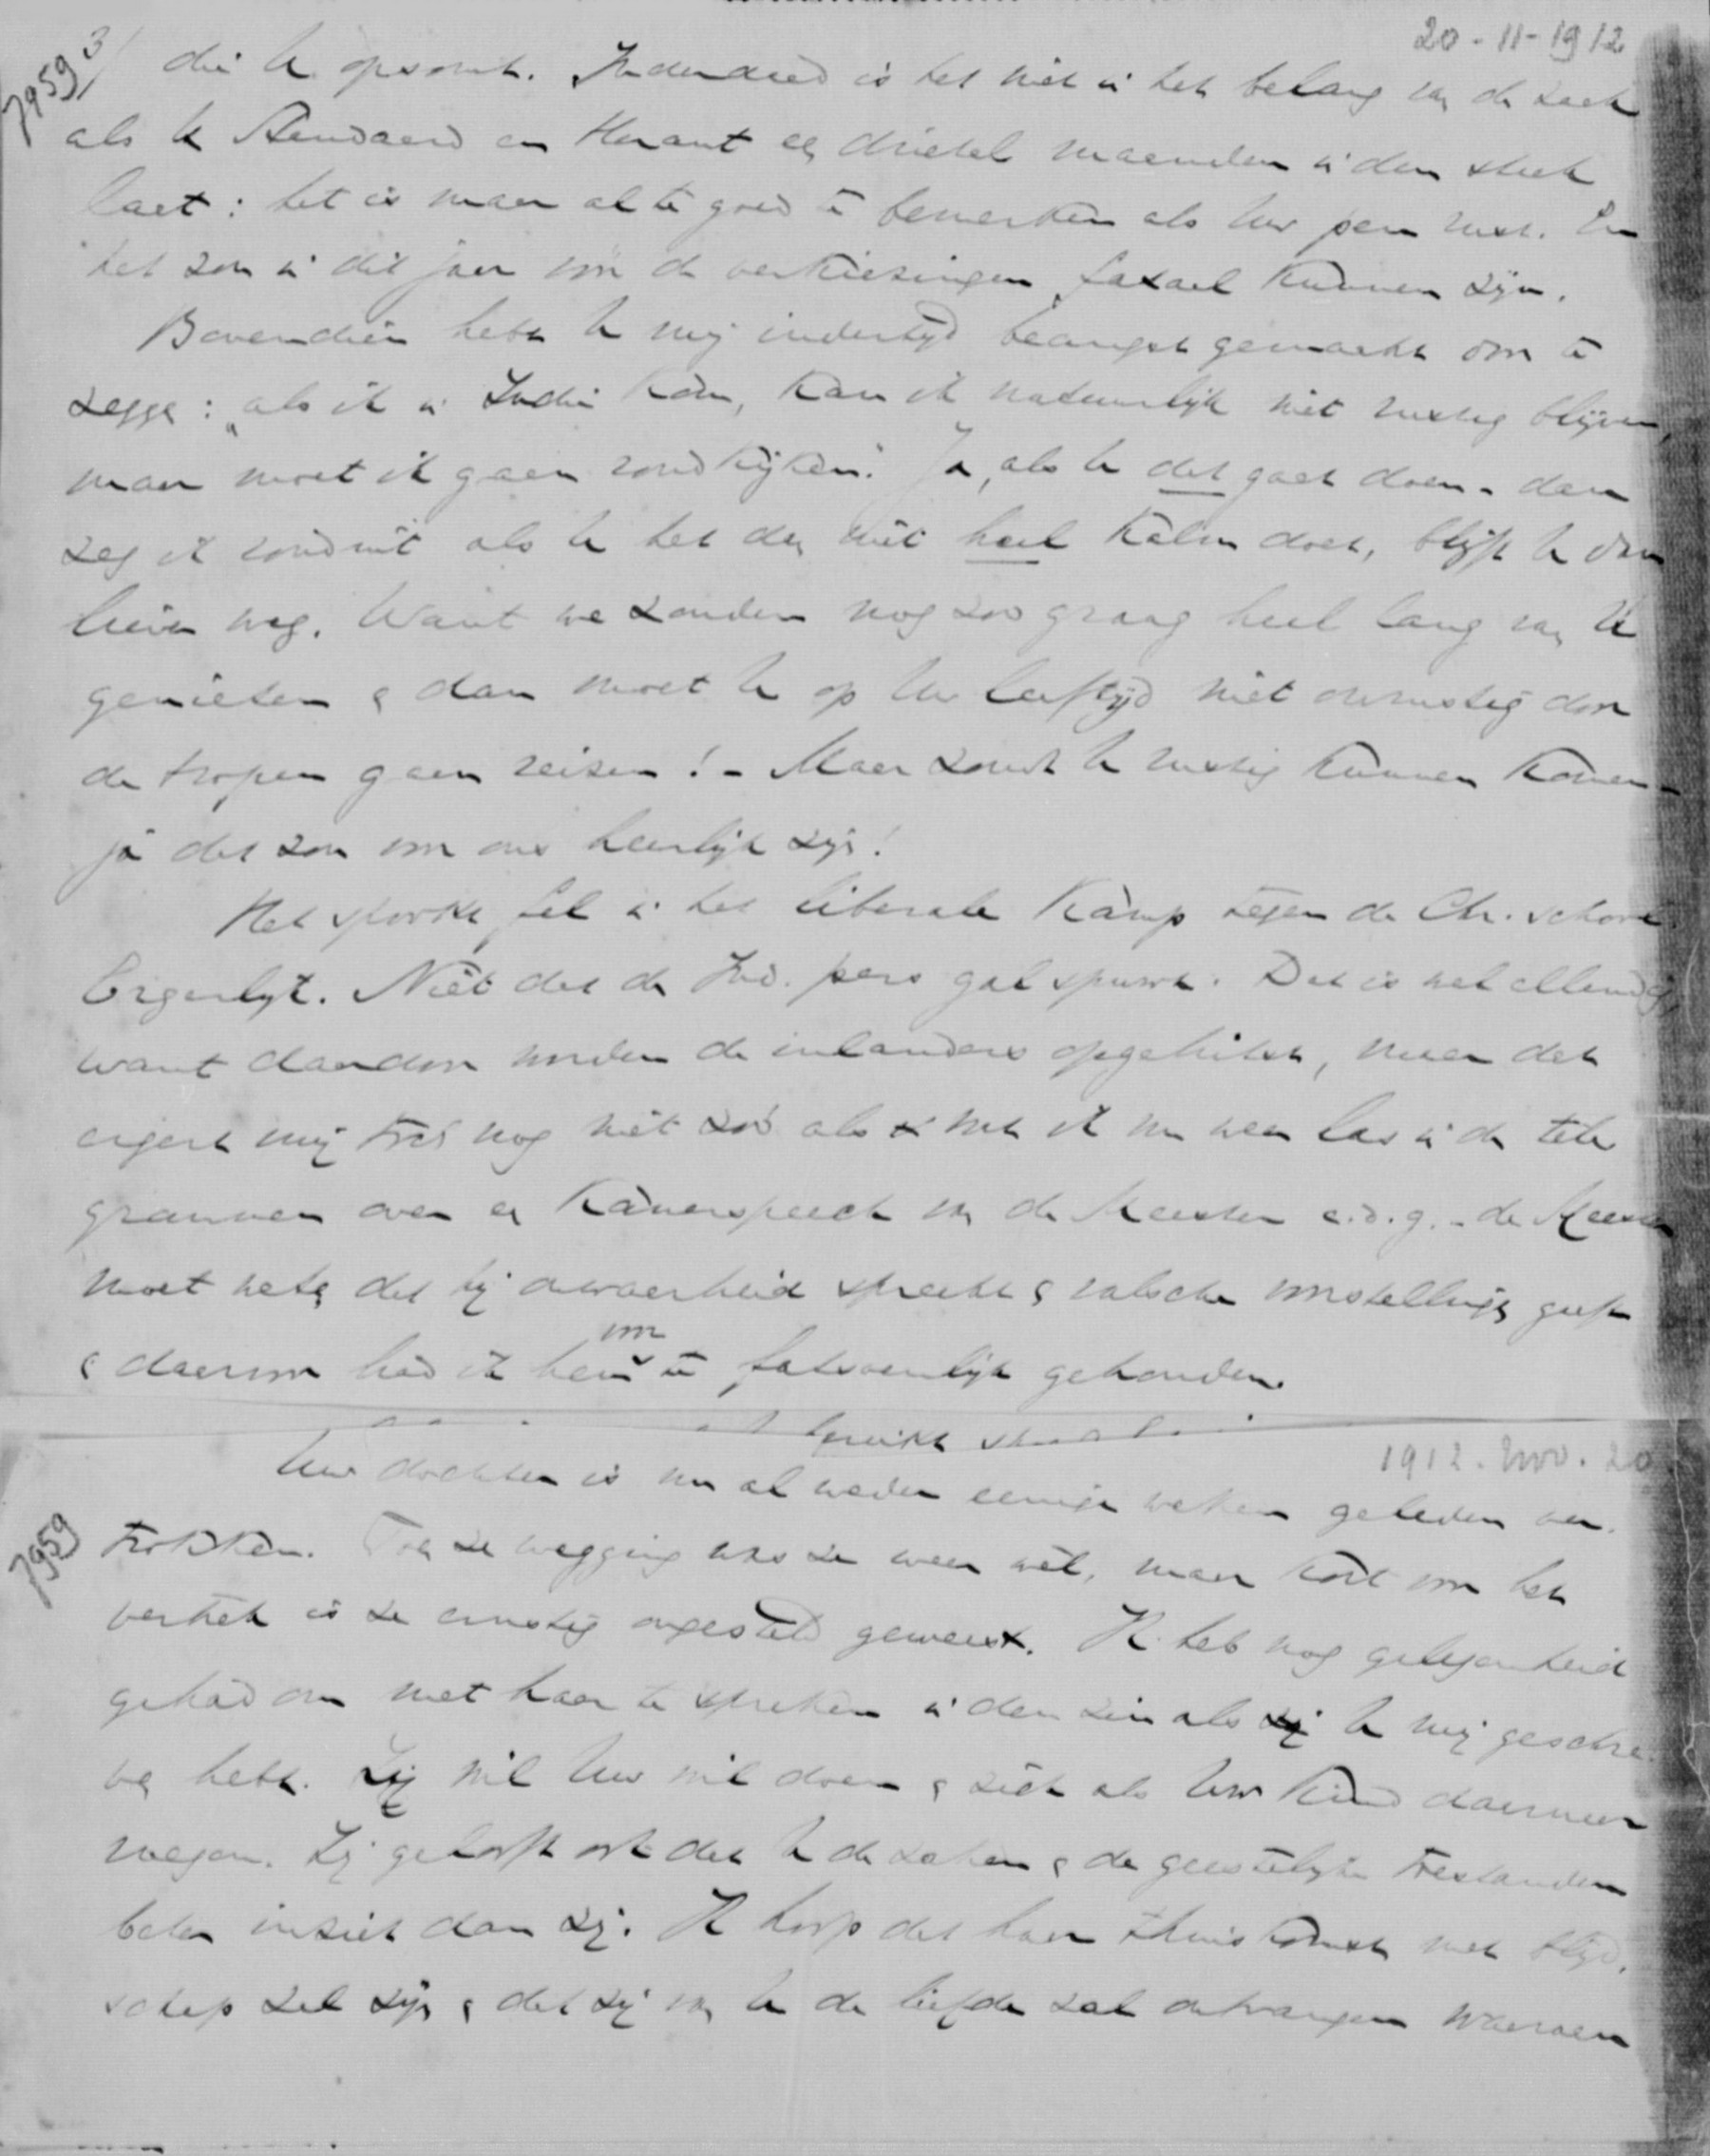 20-11-1912
7959 3/
die U opsomt. Inderdaad is het niet in het belang van de zaak
als U Standaard en Heraut een drietal maanden in den steek
laat: het is maar al te goed te bemerken als Uw pen rust. En
het zou in dit jaar vóór de verkiezingen fataal kunnen zijn.
Bovendien hebt U mij indertijd beangst gemaakt door te
zeggen: „als ik in Indië kom, kan ik natuurlijk niet rustig blijven,
maar moet ik gaan rondkijken." Ja, als U dat gaat doen - dan
zeg ik ronduit als U het dan niet heel kalm doet, blijft U dan
liever weg. Want we zouden nog zoo graag heel lang van U
genieten & dan moet U op Uw leeftijd niet onrustig door
de tropen gaan reizen! - Maar zoudt U rustig kunnen komen -
ja dat zou voor ons heerlijk zijn!
Het spookt fel in het liberale kamp tegen de Chr. school.
Ergerlijk. Niet dat de Ind. pers gal spuwt. Dat is wel ellendig,
want daardoor worden de inlanders opgehitst, maar dat
ergert mij toch nog niet zoo als wat ik nu weer las in de tele
grammen over een Kamerspeech van de Meester e.d.g. - de Meester
moet weten dat hij onwaarheid spreekt & valsche voorstellingen geeft
& daarvoor had ik hem voor te fatsoenlijk gehouden.
1912. Nov. 20
7959
Uw dochter is nu al weder eenige weken geleden ver-
trokken. Toen ze wegging was ze weer wèl, maar kort voor het
vertrek is ze ernstig ongesteld geweest. Ik heb nog gelegenheid
gehad om met haar te spreken in den zin als U mij geschre-
ven hebt. Zij wil Uw wil doen & zich als Uw kind daarnaar
voegen. Zij gelooft ook dat U de zaken & de geestelijke toestanden
beter inziet dan zij. Ik hoop dat haar thuiskomst met blijd-
schap zal zijn & dat zij van U de liefde zal ontvangen waaraan